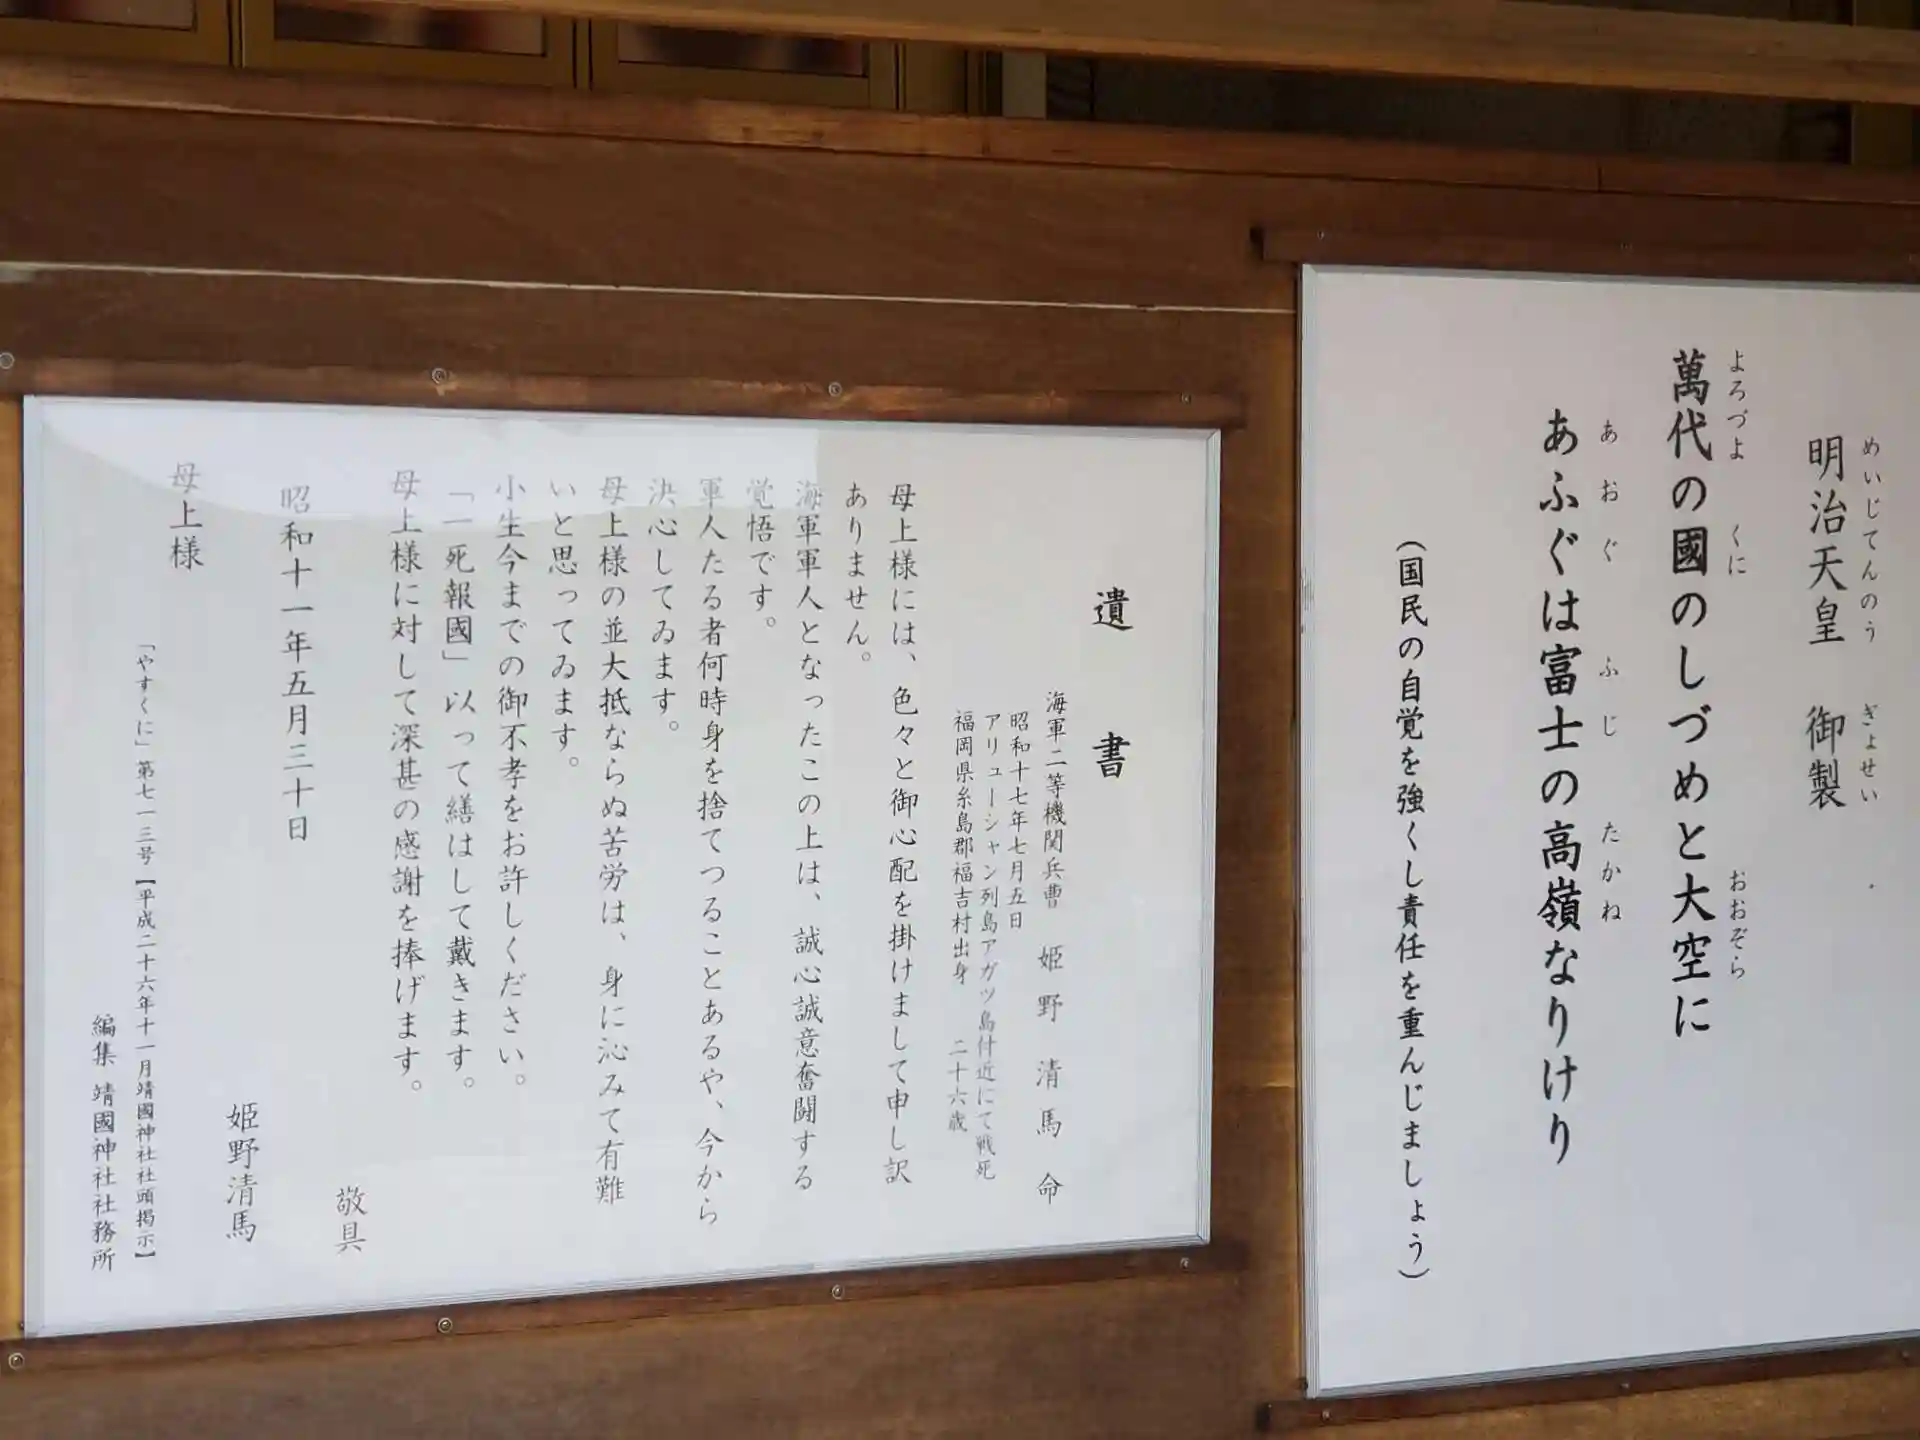 明治天皇　御製
めいじてんのう　ぎょせい
萬代の國のしづめと大空に
よろづよ　くに　おおぞら
あふぐは富士の高嶺なりけり
あおぐ　ふじ　たかね
（国民の自覚を強くし責任を重んじましょう）
遺書
海軍二等機関兵曹　姫野清馬命
昭和十七年七月五日
アリューシャン列島アガッ島付近にて戦死
福岡県糸島郡福吉村出身　二十六歳
母上様には、色々と御心配を掛けまして申し訳
ありません。
海軍軍人となったこの上は、誠心誠意奮闘する
覚悟です。
軍人たる者何時身を捨てつることあるや、今から
決心してゐます。
母上様の並大抵ならぬ苦労は、身に沁みて有難
いと思ってゐます。
小生今までの御不孝をお許しください。
「一死報國」以って繕はして戴きます。
母上様に対して深甚の感謝を捧げます。
敬具
昭和十一年五月三十日
姫野清馬
母上様
「やすくに」第七一三号【平成二十六年十一月靖國神社社頭掲示】
編集　靖國神社社務所